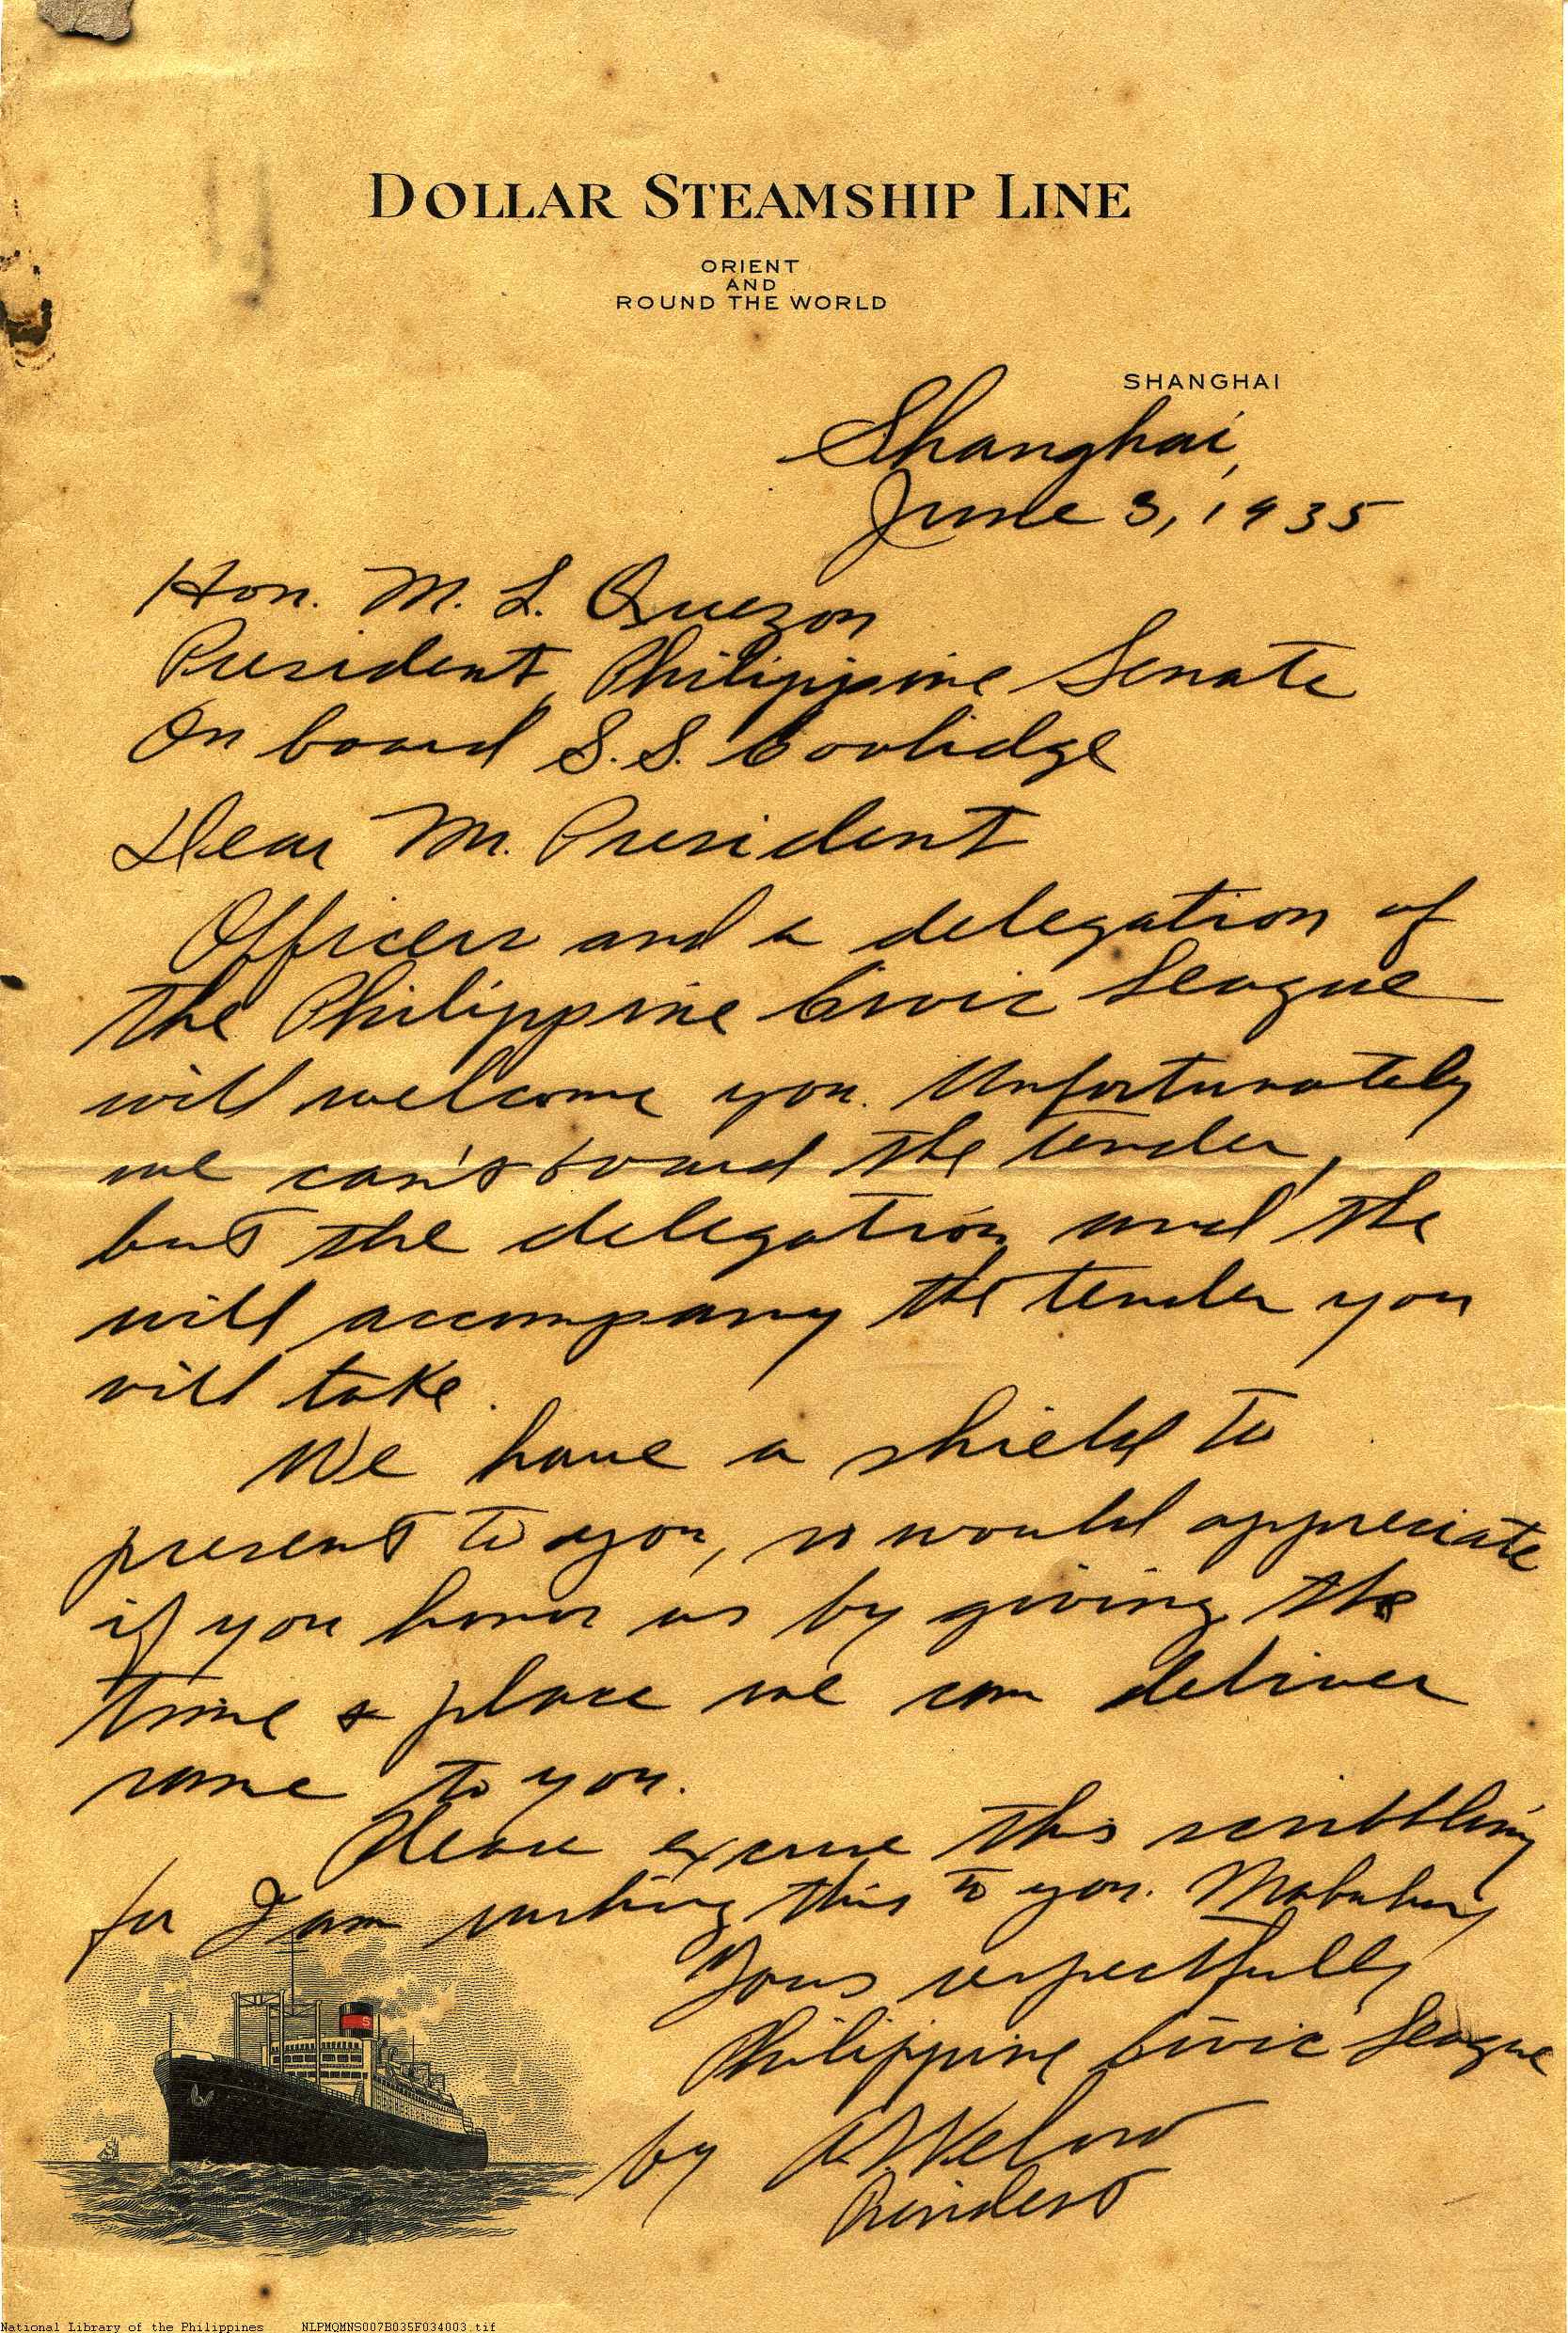 DOLLAR STEAMSHIP LINE
ORIENT
AND
ROUND THE WORLD
SHANGHAI
Shanghai,
June 3, 1935
Hon. M. L. Quezon
President, Philippine Senate
On board S.S. Coolidge
Dear Mr. President
Officers and a delegation of
the Philippine Civic League
will welcome you. Unfortunately
we can't board the tender,
but the delegation and the
will accompany the tender you
will take.
We have a shield to
present to you, so would appreciate
if you honor us by giving the
time & place we can deliver
same to you.
Please excuse this scribbling
for I am writing this to you. Mabuhay
Yours respectfully
Philippine Civic League
by
President
S
National Library of the Philippines NLPMQMNS007B035F034003.tif